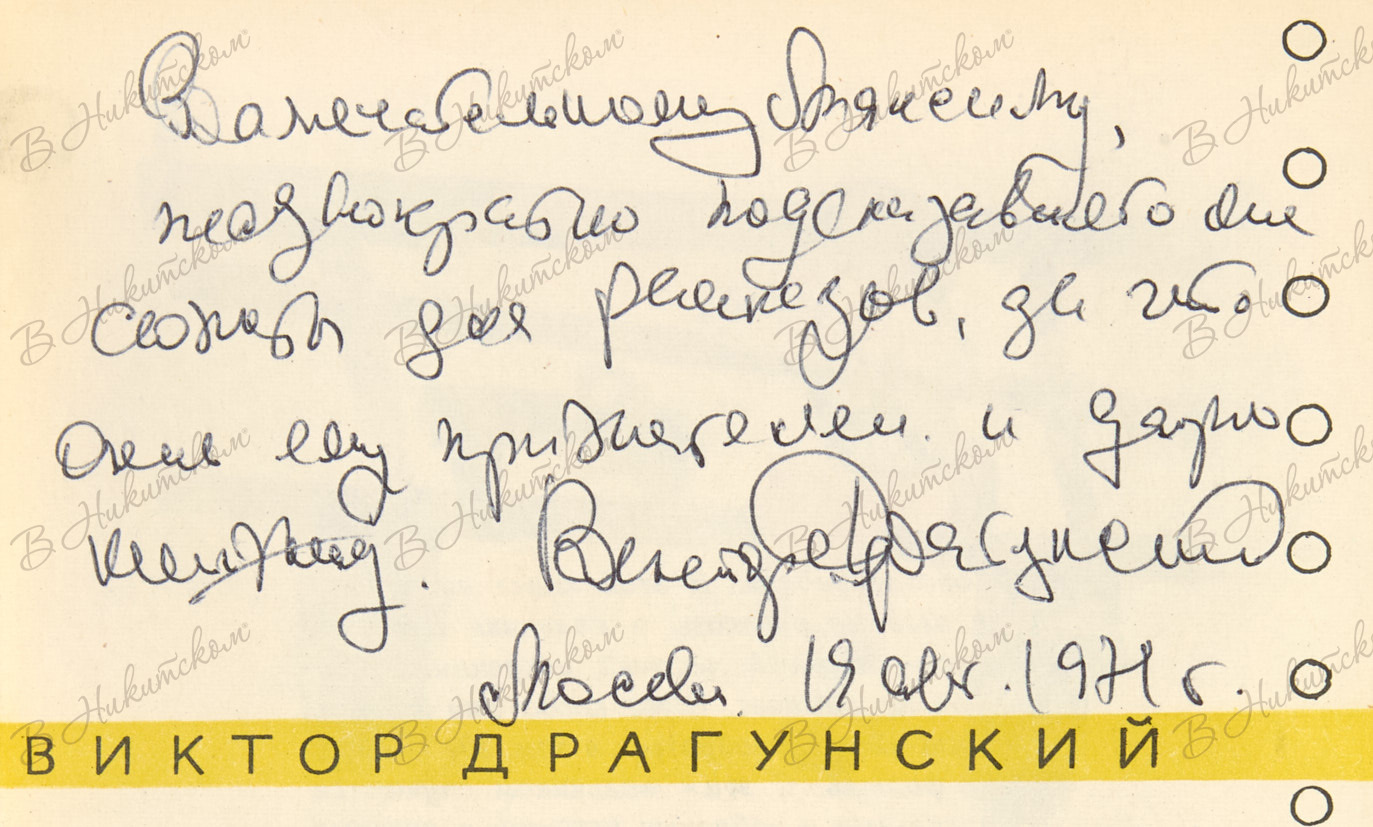 Замечательному
неоднократно подсказавшего мне
сюжеты для рассказов, за что
очень ему признателен и дарю
книжку. Виктор Драгунский
Москва. 19 авг. 1971 г.
ВИКТОР ДРАГУНСКИЙ
В Никитском